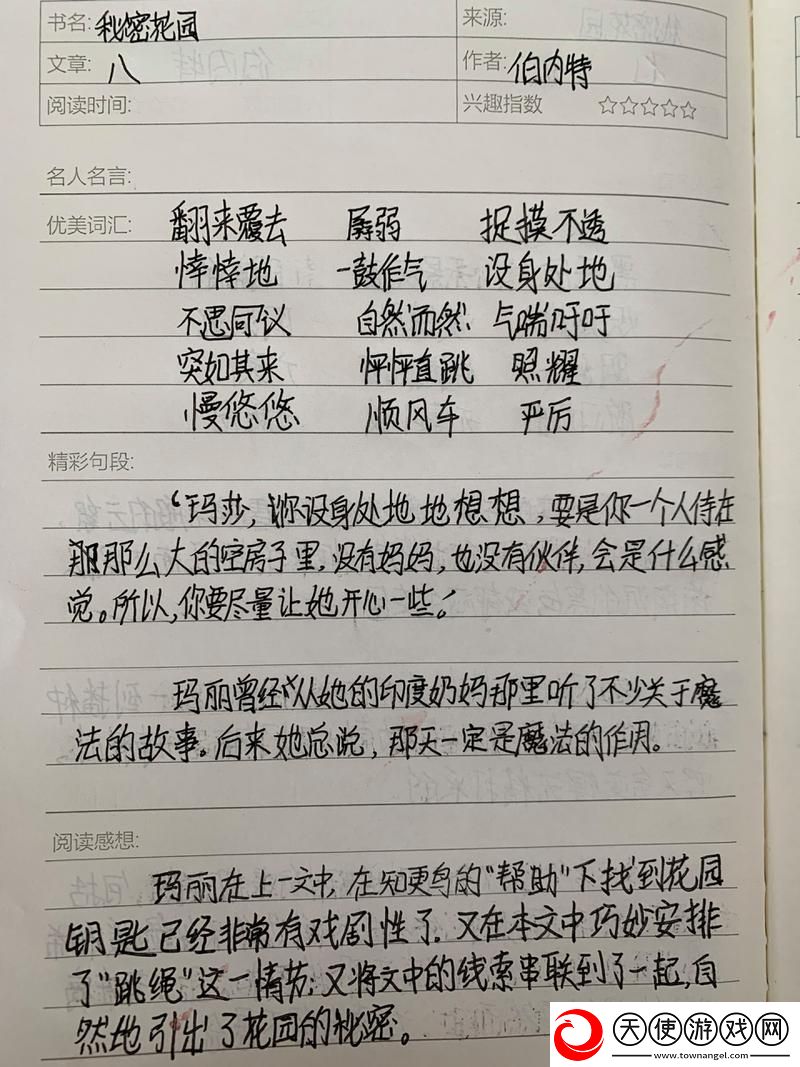 书名: 秘密花园 来源:
文章: 八 作者: 伯内特
阅读时间: 兴趣指数 ☆☆☆☆☆
名人名言:
优美词汇: 翻来覆去 孱弱 捉摸不透
悻悻地 一鼓作气 设身处地
不思同议 自然而然 气喘吁吁
突如其来 怦怦直跳 照耀
慢悠悠 顺风车 严厉
精彩句段:
“玛莎,你设身处地地想想,要是你一个人待在
那那么大的空房子里,没有妈妈,也没有伙伴,会是什么感
觉。所以,你要尽量让她开心一些!
玛丽曾经从她的印度奶妈那里听了不少关于魔
法的故事。后来她总说,那天一定是魔法的作用。
阅读感想:
玛丽在上一文中,在知更鸟的“帮助”下找到花园
钥匙已经非常有戏剧性了.又在本文中巧妙安排
了“跳绳”这一情节;又将文中的线索串联到了一起,自
然地引出了花园的秘密。
天使游戏网
www.townangel.com